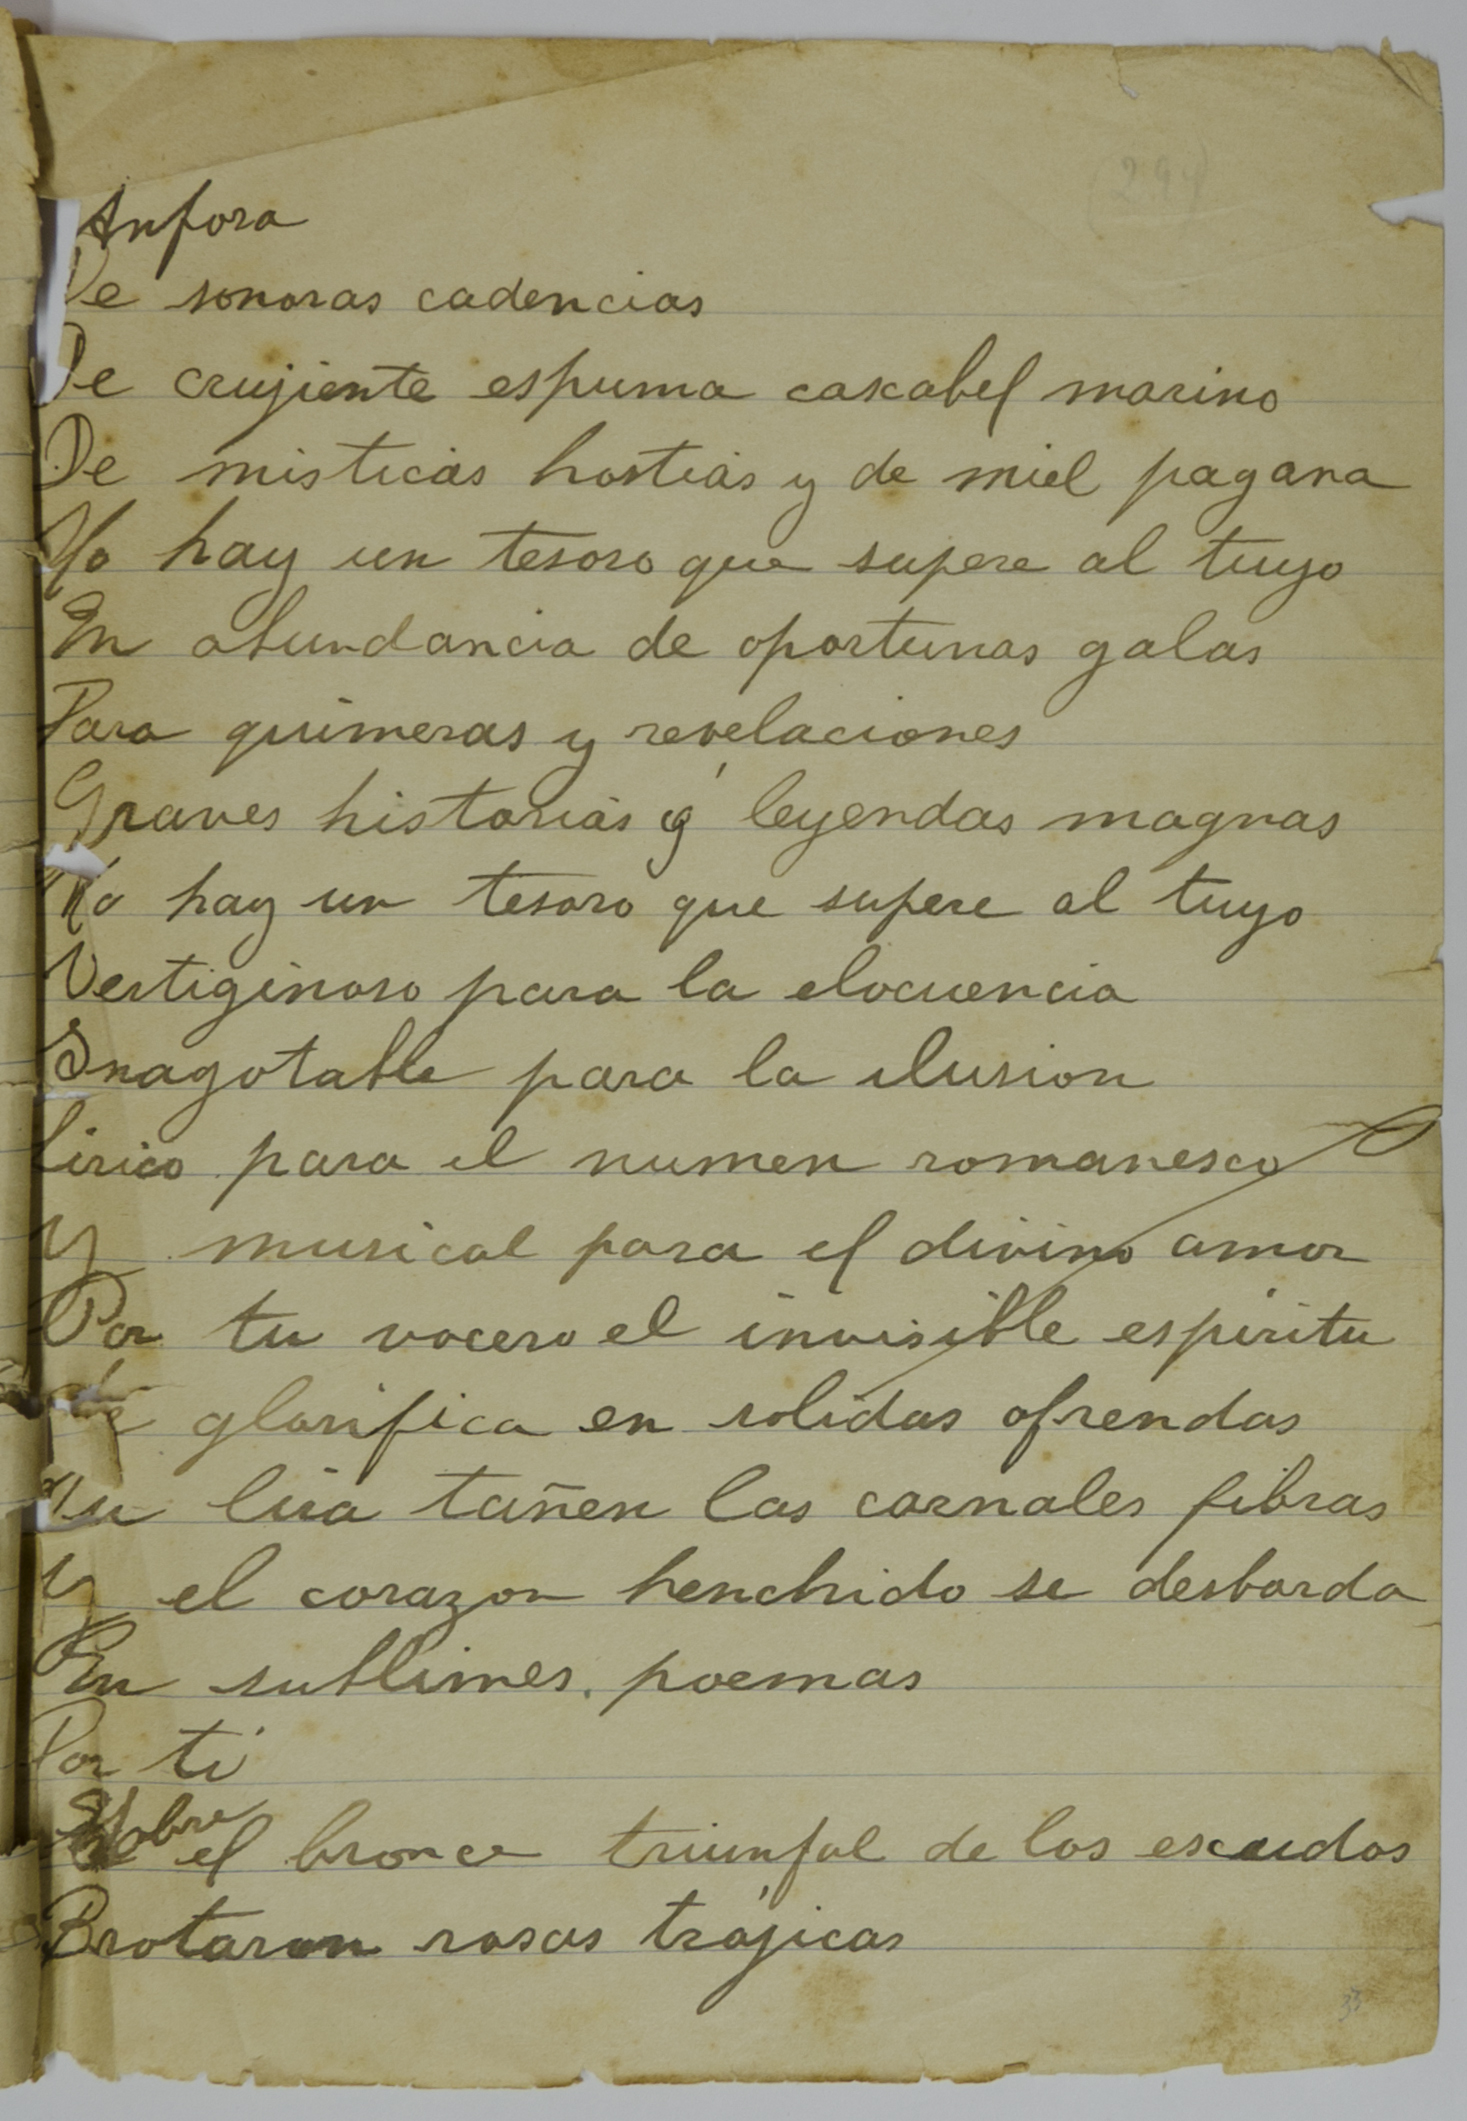 (294)
Anfora
De sonoras cadencias
De crujiente espuma cascabel marino
De misticás hostiás y de miel pagana
No hay un tesoro que supere al tuyo
En abundancia de oportunas galas
Para quimeras y revelaciones
Graves historiás y leyendas magnas
No hay un tesoro que supere al tuyo
Vertiginoso para la elocuencia
Inagotable para la ilusion
Lirico para el numen romanesco
Y musical para el divino amor
Por tu vocero el invisible espíritu
Se glorifica en solidas ofrendas
Tu lira tañen las carnales fibras
Y el corazon henchido se desborda
En sublimes poemas
Por ti
Sobre el bronce triunfal de los escudos
Brotaron rosas trájicas
33